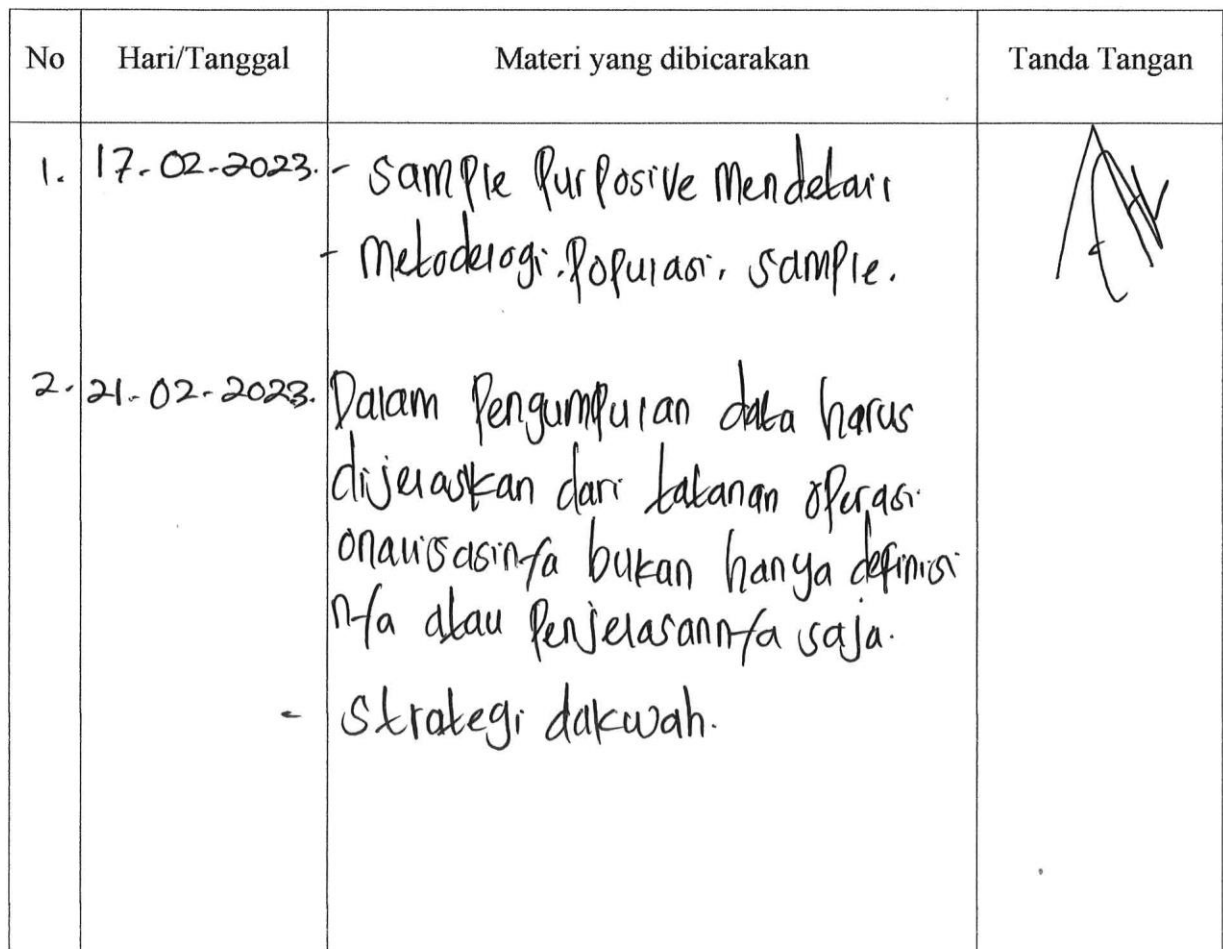 No Hari/Tanggal Materi yang dibicarakan Tanda Tangan
1. 17-02-2023. - Sample Purposive Mendetail
- Metodelogi. Populasi, sample.
2. 21-02-2023. Dalam Pengumpulan data harus
dijelaskan dari tatanan operasi
onalisasinya bukan hanya definisi
nya atau Penjelasannya saja.
- Strategi dakwah.